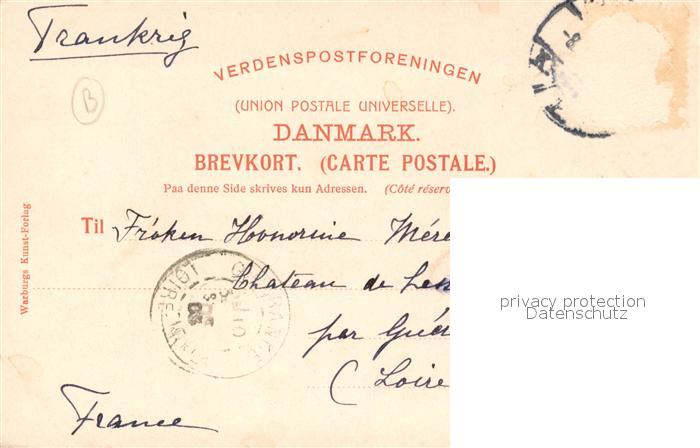 Frankrig
B
VERDENSPOSTFORENINGEN
(UNION POSTALE UNIVERSELLE).
DANMARK.
BREVKORT. (CARTE POSTALE.)
Paa denne Side skrives kun Adressen. (Côté réserv
Warburgs Kunst-Forlag
Til Frøken Honorine Mére
Chateau de Les
par Guér
(Loire
France
privacy protection
Datenschutz